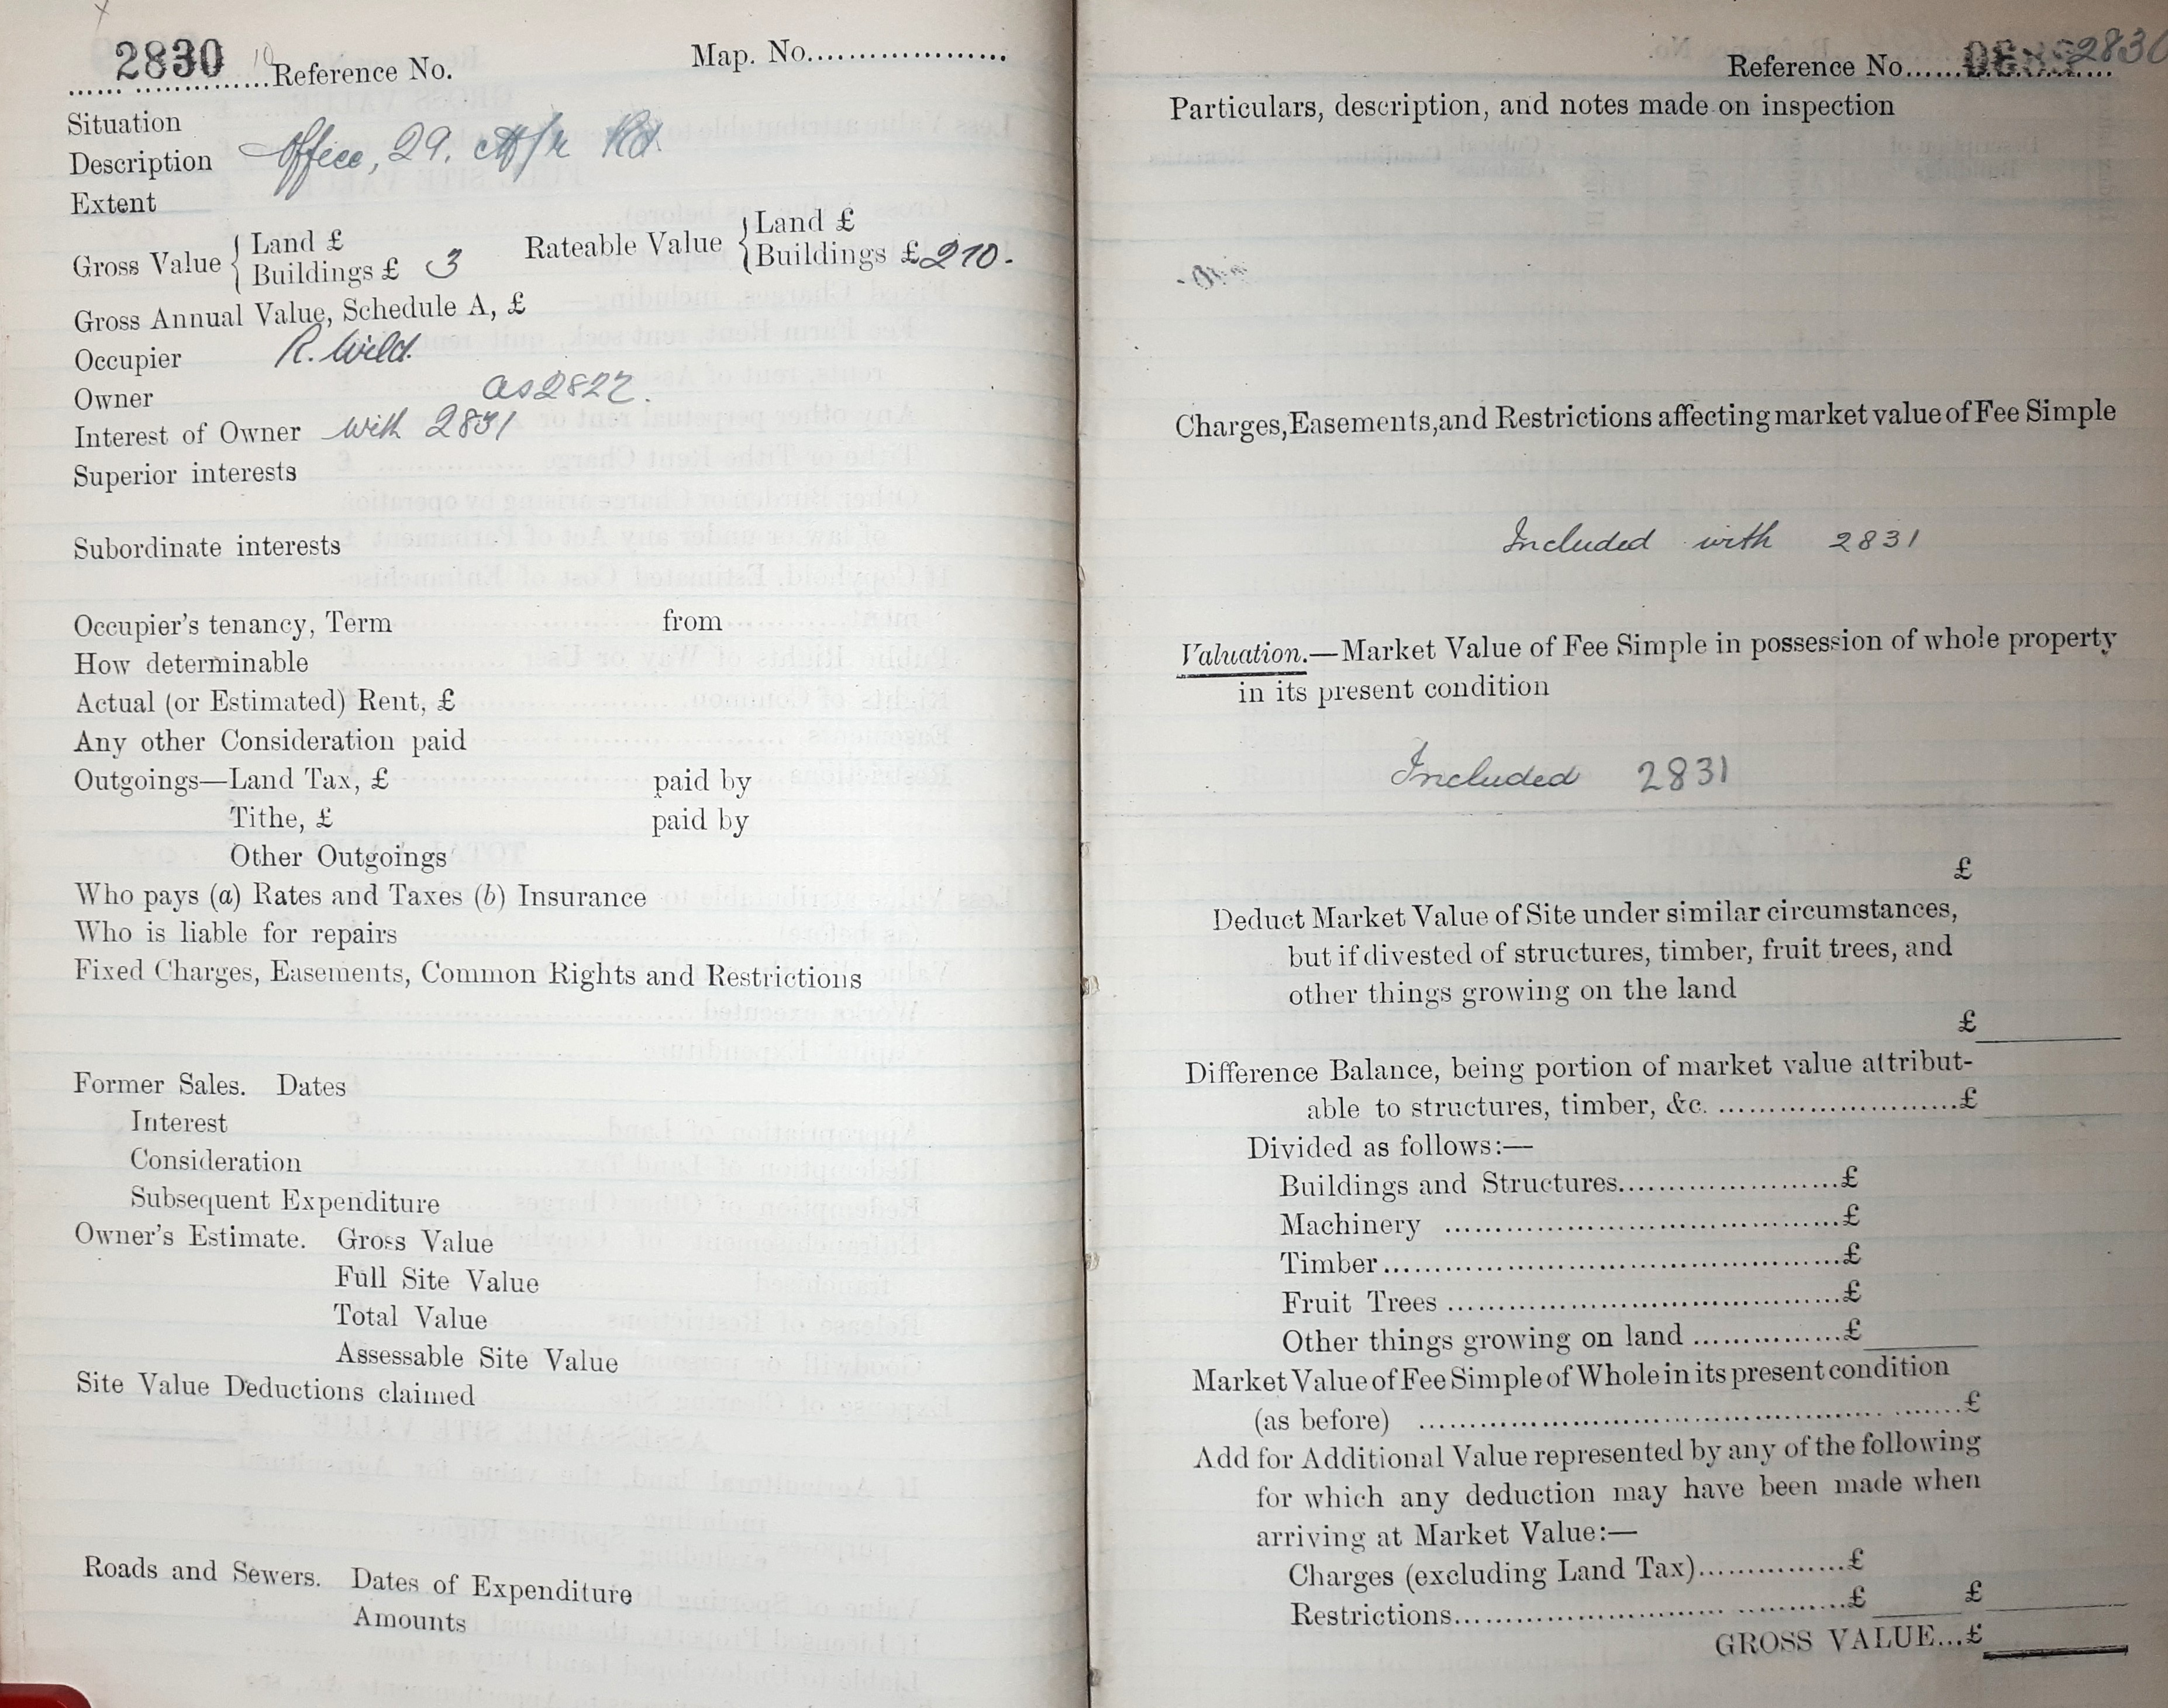 2830 10 Reference No. Map. No....................
Situation
Description Office, 29. A/r Rd
Extent
Gross Value { Land £
Buildings £ 3
Rateable Value { Land £
Buildings £ 2 10 -
Gross Annual Value, Schedule A, £
Occupier R. Wild.
Owner as 2822.
Interest of Owner with 2831
Superior interests
Subordinate interests
Occupier's tenancy, Term from
How determinable
Actual (or Estimated) Rent, £
Any other Consideration paid
Outgoings—Land Tax, £ paid by
Tithe, £ paid by
Other Outgoings
Who pays (a) Rates and Taxes (b) Insurance
Who is liable for repairs
Fixed Charges, Easements, Common Rights and Restrictions
Former Sales. Dates
Interest
Consideration
Subsequent Expenditure
Owner's Estimate. Gross Value
Full Site Value
Total Value
Assessable Site Value
Site Value Deductions claimed
Roads and Sewers. Dates of Expenditure
Amounts
Reference No...... 2830
Particulars, description, and notes made on inspection
Charges, Easements, and Restrictions affecting market value of Fee Simple
Included with 2831
Valuation.—Market Value of Fee Simple in possession of whole property
in its present condition
Included 2831
£
Deduct Market Value of Site under similar circumstances,
but if divested of structures, timber, fruit trees, and
other things growing on the land
£
Difference Balance, being portion of market value attribut-
able to structures, timber, &c. ..........................£
Divided as follows:—
Buildings and Structures.......................£
Machinery .........................................£
Timber...............................................£
Fruit Trees .........................................£
Other things growing on land ...............£
Market Value of Fee Simple of Whole in its present condition
(as before) ......................................................£
Add for Additional Value represented by any of the following
for which any deduction may have been made when
arriving at Market Value:—
Charges (excluding Land Tax)...............£
Restrictions.........................................£ £
GROSS VALUE...£